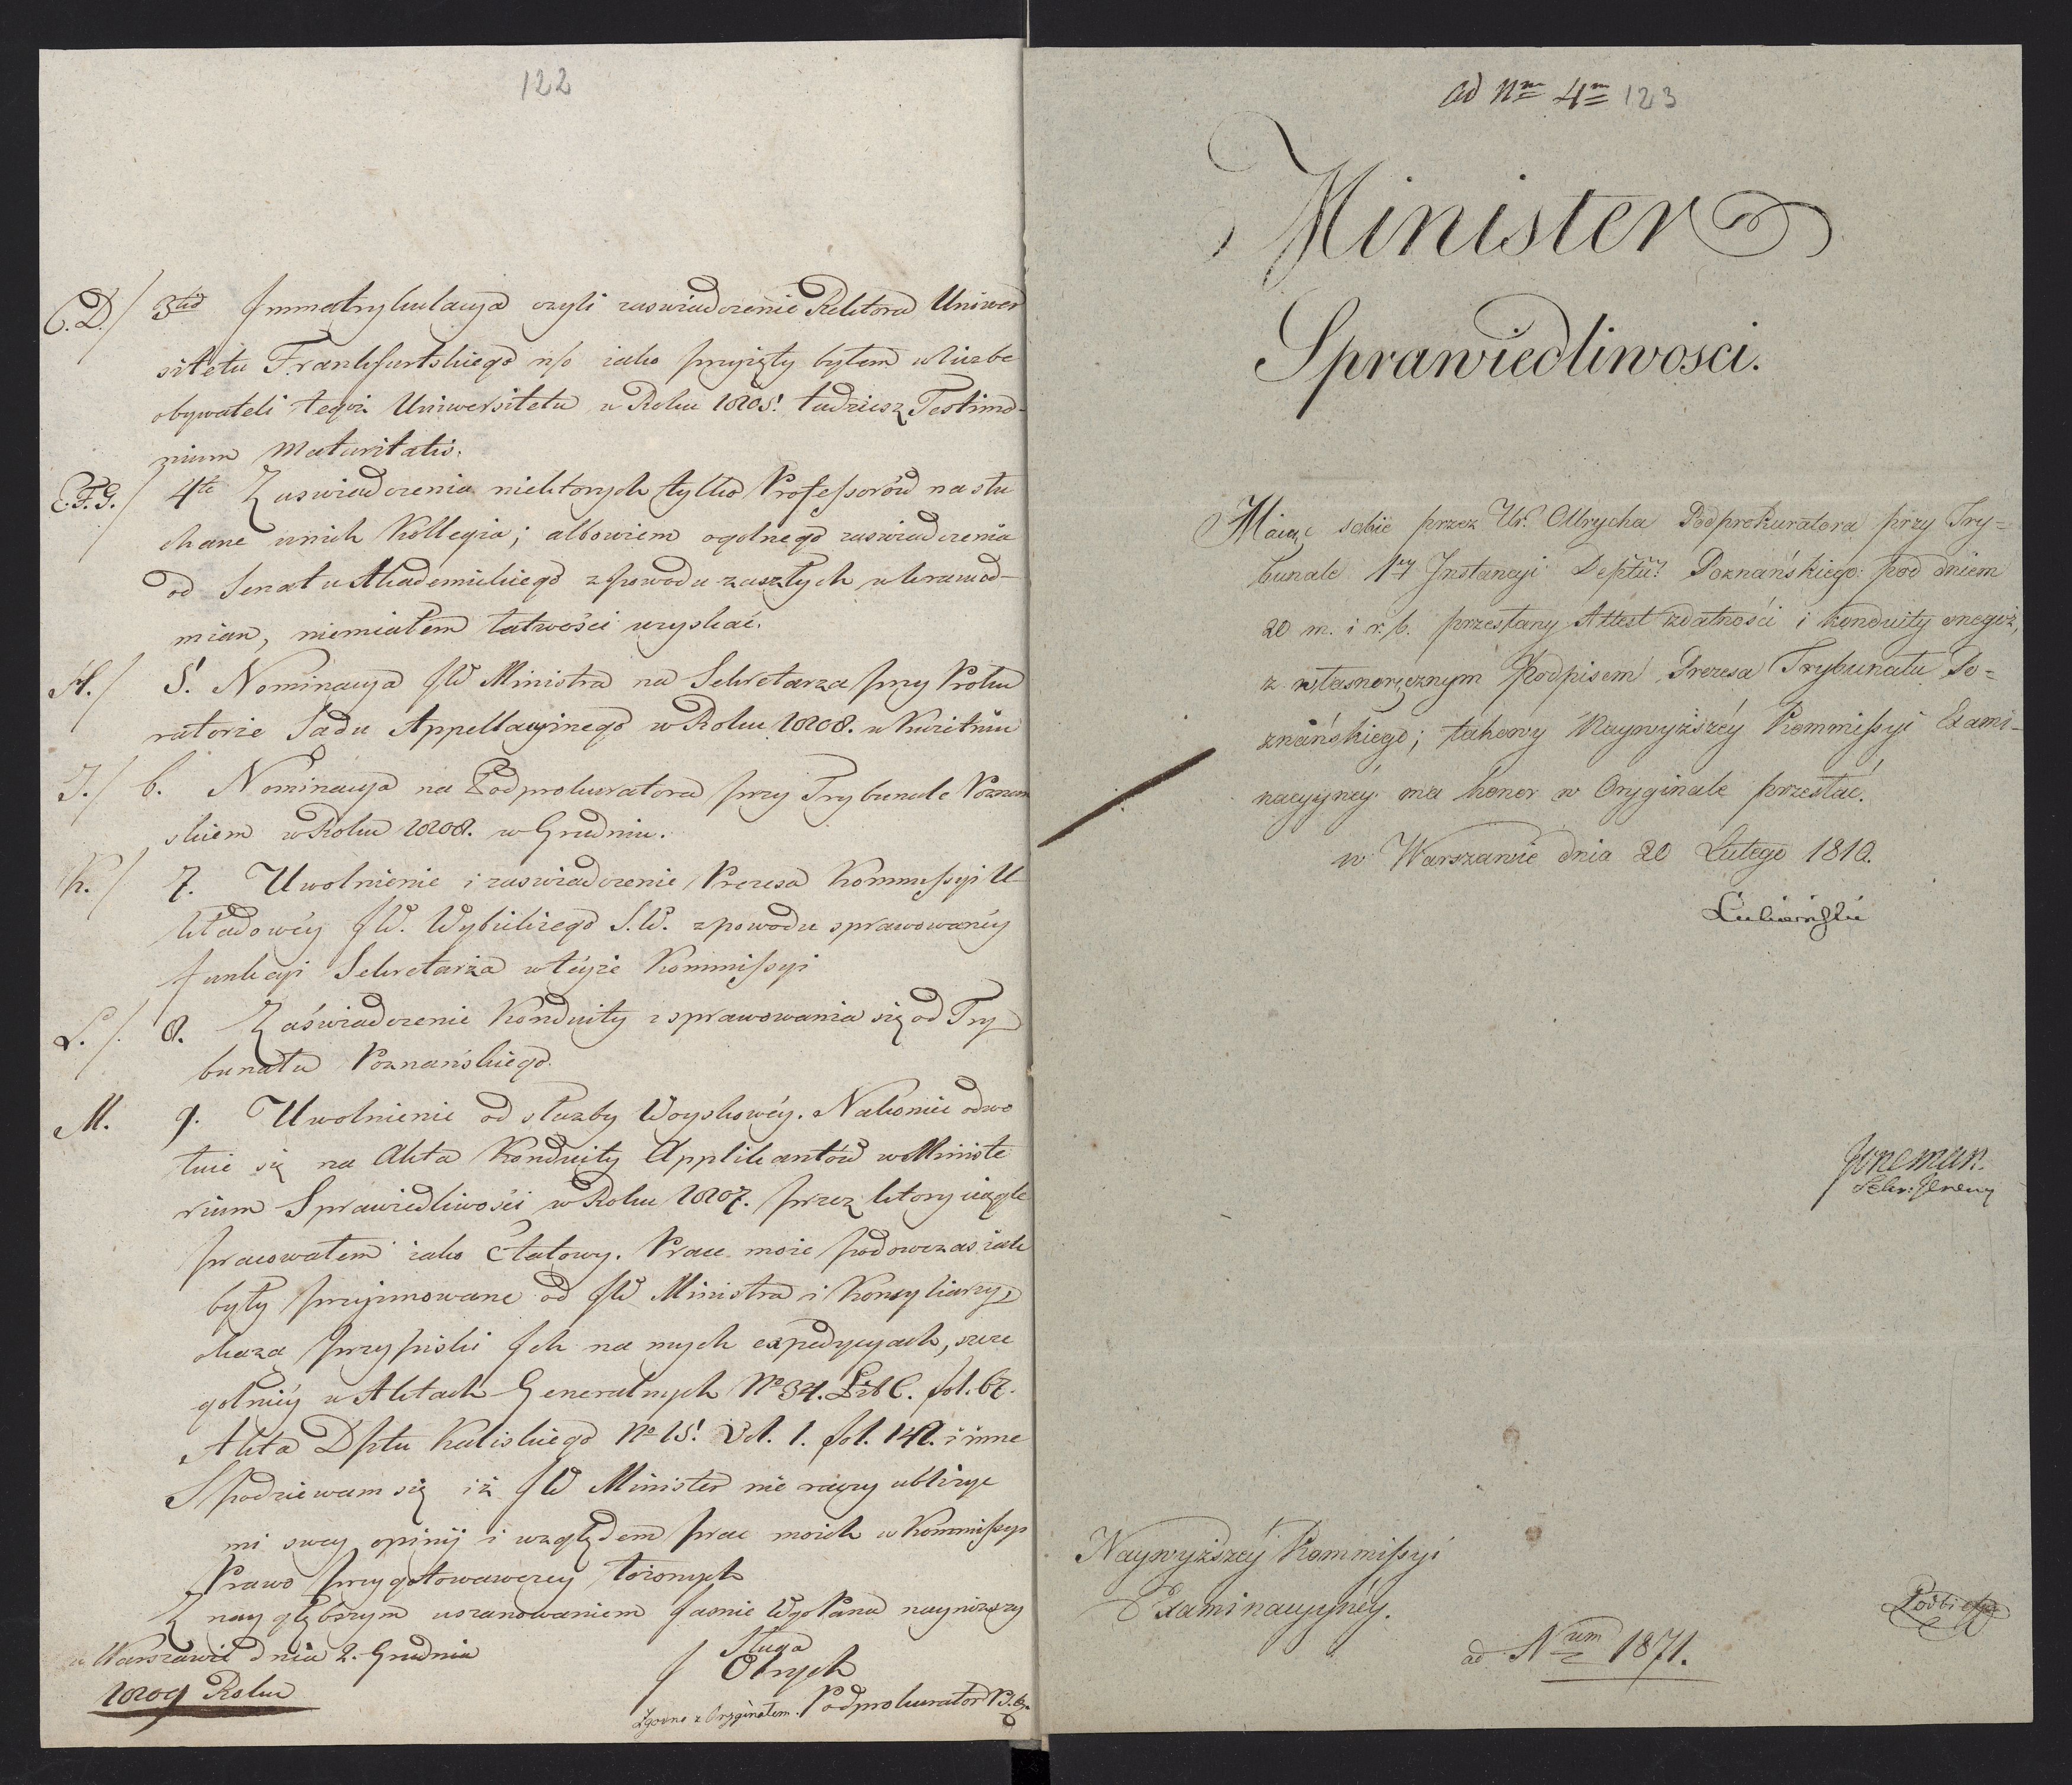 122
C. D./ 3tio Immatrykulacya czyli zaswiadczenie Rektora Uniwer
sitetu Frankfurtskiego n/o iako przyięty byłem w liczbe
obywateli tegoż Uniwersitetu w Roku 1805. tudziesz Testimo-
nium Maturitatis.
E. F. G./ 4te Zaswiadczenia niektorych tylko Professorów na słu
chane u nich Kollegia; albowiem ogolnego zaswiadczenia
od Senatu Akademickiego z powodu zaszłych w kraiu od-
mian, niemiałem łatwości uzyskać.
H./ 5. Nominacya JW Ministra na Sekretarza przy Proku
ratorze Sądu Appellacyinego w Roku 1808. w Kwietniu
I./ 6. Nominacya na Podprokuratora przy Trybunale Poznan
skiem w Roku 1808. w Grudniu.
K./ 7. Uwolnienie i zaswiadczenie Prezesa Kommissyi U-
kładowéy JW. Wybickiego S. W. z powodu sprawowanéy
funkcyi Sekretarza w téyże Kommissyi
L./. 8. Zaświadczenie Konduity i sprawowania się od Try
bunału Poznańskiego.
M. 9. Uwolnienie od służby Woyskowéy. Nakoniec odwo
łuie się na Akta Konduity Applikantów w Ministe
rium Sprawiedliwości w Roku 1807. przez ktory ciągle
pracowałem iako Etatowy. Prace moie podowczas iak
były przyimowane od JW Ministra i Konsyliarzy,
okaza przypiski Ich na mych expedycyach, szcze
golniéy w Aktach Generalnych No 34. Lit C. fol. 67.
Akta Dptu Kaliskiego No 15. Vol. 1. fol. 142. i inne
Spodziewam się iż JW Minister nie raczy ubliżyć
mi swey opinij i względem prac moich w Kommissyi
Prawo przygotowawczey łożonych
Z nayglębszym uszanowaniem Jasnie Wgo Pana nayniższy
Sługa
w Warszawie dnia 2. Grudnia
J Olrych
1809 Roku
Zgodno z Oryginałem. Podprokurator
ad Nm 4m 123
Minister
Sprawiedliwosci.
Maiąc sobie przez Ur. Olrycha Podprokuratora przy Try=
bunale 1ey Instancyi Deptu. Poznańskiego pod dniem
20 m. i r. b. przesłany Attest zdatności i konduity onegoż,
z własnoręcznym Podpisem Prezesa Trybunału Po=
znańskiego; takowy Naywyższéy Kommissyi Exami-
nacyynéy ma honor w Oryginale przesłać.
w Warszawie dnia 20 Lutego 1810.
Łubieński
Sekr: Jlny
Naywyższéy Kommissyi
Examinacyynéy.
ad Num 1871.